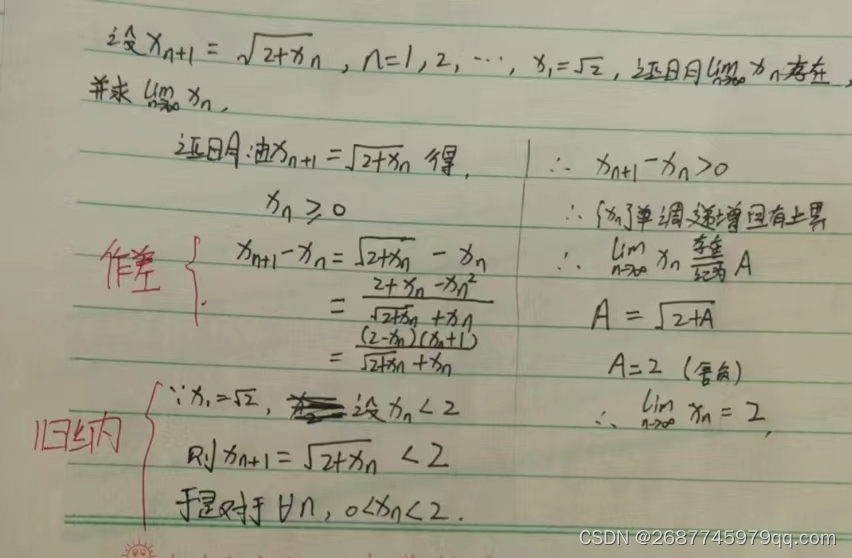 设 xₙ₊₁ = √(2+xₙ), n=1, 2, ⋯, x₁=√2, 证明 lim_{n→∞} xₙ 存在,
并求 lim_{n→∞} xₙ.
证明:由 xₙ₊₁ = √(2+xₙ) 得,
xₙ ≥ 0
作差
xₙ₊₁ - xₙ = √(2+xₙ) - xₙ
= (2+xₙ-xₙ²)/(√(2+xₙ)+xₙ)
= (2-xₙ)(xₙ+1)/(√(2+xₙ)+xₙ)
归纳
∵ x₁=√2, 设 xₙ<2
则 xₙ₊₁ = √(2+xₙ) < 2
于是对于 ∀n, 0<xₙ<2.
∴ xₙ₊₁ - xₙ > 0
∴ {xₙ} 单调递增且有上界
∴ lim_{n→∞} xₙ 存在 记为 A
A = √(2+A)
A=2 (舍负)
∴ lim_{n→∞} xₙ = 2,
CSDN @2687745979qq.com